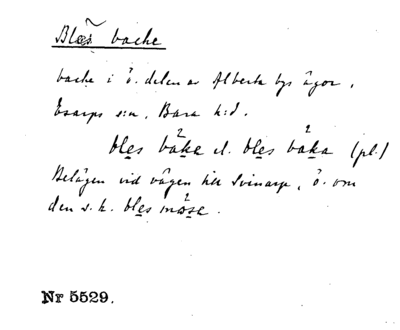 Blös backe
backe i ö. delen av Alberta bys ägor,
Esarps s:n, Bara h:d.
bles bake el. bles baka (pl.)
Belägen vid vägen till Svinarp, ö. om
den s.k. bles mose.
Nr 5529.